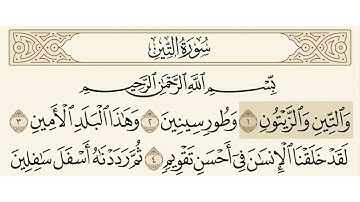 سُورَةُ التِّينِ
بِسْمِ اللَّهِ الرَّحْمَٰنِ الرَّحِيمِ
وَالتِّينِ وَالزَّيْتُونِ ١ وَطُورِ سِينِينَ ٢ وَهَٰذَا الْبَلَدِ الْأَمِينِ ٣
لَقَدْ خَلَقْنَا الْإِنسَٰنَ فِي أَحْسَنِ تَقْوِيمٍ ٤ ثُمَّ رَدَدْنَٰهُ أَسْفَلَ سَٰفِلِينَ